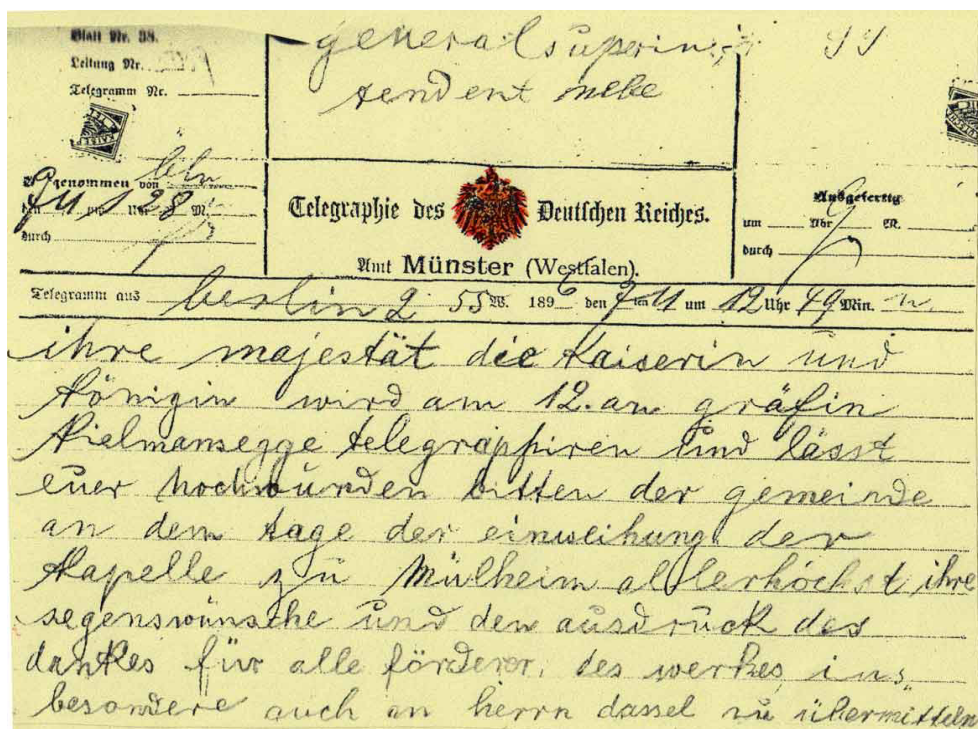 Blatt Nr. 38.
Leitung Nr.
Telegramm Nr.
generalsuperin-
tendent nebe
Aufgenommen von bln
den 7/11 um Uhr 28 M.
durch
Telegraphie des Deutschen Reiches.
Amt Münster (Westfalen).
Ausgefertigt
um Uhr M.
durch
Telegramm aus berlin 2 55 W. 1896 den 7/11 um 12 Uhr 49 Min. n.
ihre majestät die kaiserin und
königin wird am 12. an gräfin
kielmansegge telegraphiren und lässt
euer hochwürden bitten der gemeinde
an dem tage der einweihung der
kapelle zu mülheim allerhöchst ihre
segenswünsche und den ausdruck des
dankes für alle förderer, des werkes ins,,
besondere auch an herrn dassel zu übermitteln